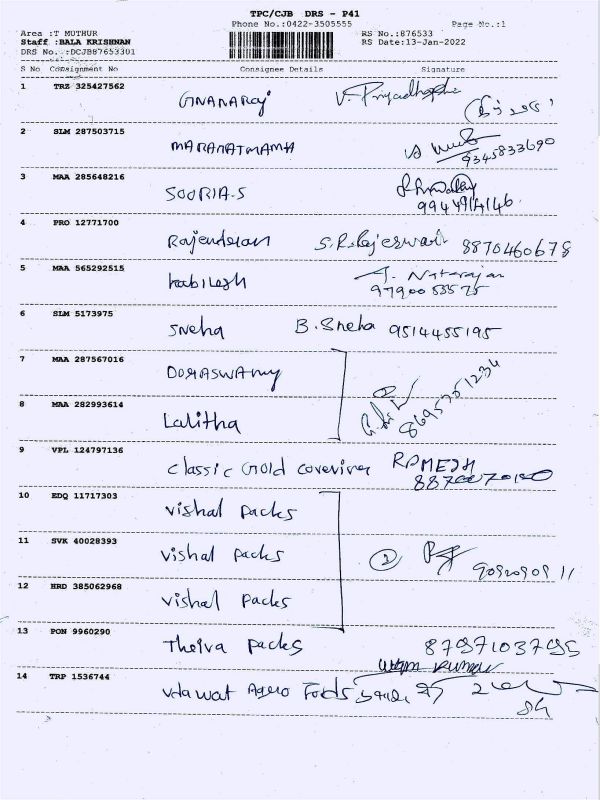 TPC/CJB DRS - P41
Phone No.:0422-3505555 Page No.:1
Area :T MUTHUR RS No.:876533
Staff :BALA KRISHNAN RS Date:13-Jan-2022
DRS No. :DCJB87653301
S No Consignment No Consignee Details Signature
1 TRZ 325427562 GNANARAJ V. Priyadharshe
2 SLM 287503715 MARANATMAMA
9345833690
3 MAA 285648216 SOORIA.S
9944914146
4 PRO 12771700 Rajenderan S.Rajeswari 8870460678
5 MAA 565292515 kabilesh J. Natarajan
9790053575
6 SLM 5173975 Sneha B.Sneha 9514455195
7 MAA 287567016 DORASWAMY
8695351234
8 MAA 282993614 Lalitha
9 VPL 124797136 classic Gold covering RAMESH
10 EDQ 11717303 vishal packs
11 SVK 40028393 vishal packs 2
12 HRD 385062968 vishal packs
13 PON 9960290 Theiva packs
14 TRP 1536744 Udawat Agro Foods